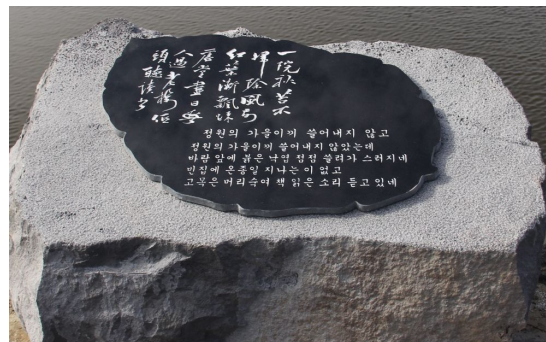 一院秋苔不
掃除風前
紅葉漸飄疎
虛堂盡日無
人過老樹低
頭聽讀書
정원의 가을이끼 쓸어내지 않고
정원의 가을이끼 쓸어내지 않았는데
바람 앞에 붉은 낙엽 점점 쓸려가 스러지네
빈집에 온종일 지나는 이 없고
고목은 머리숙여 책 읽은 소리 듣고 있네